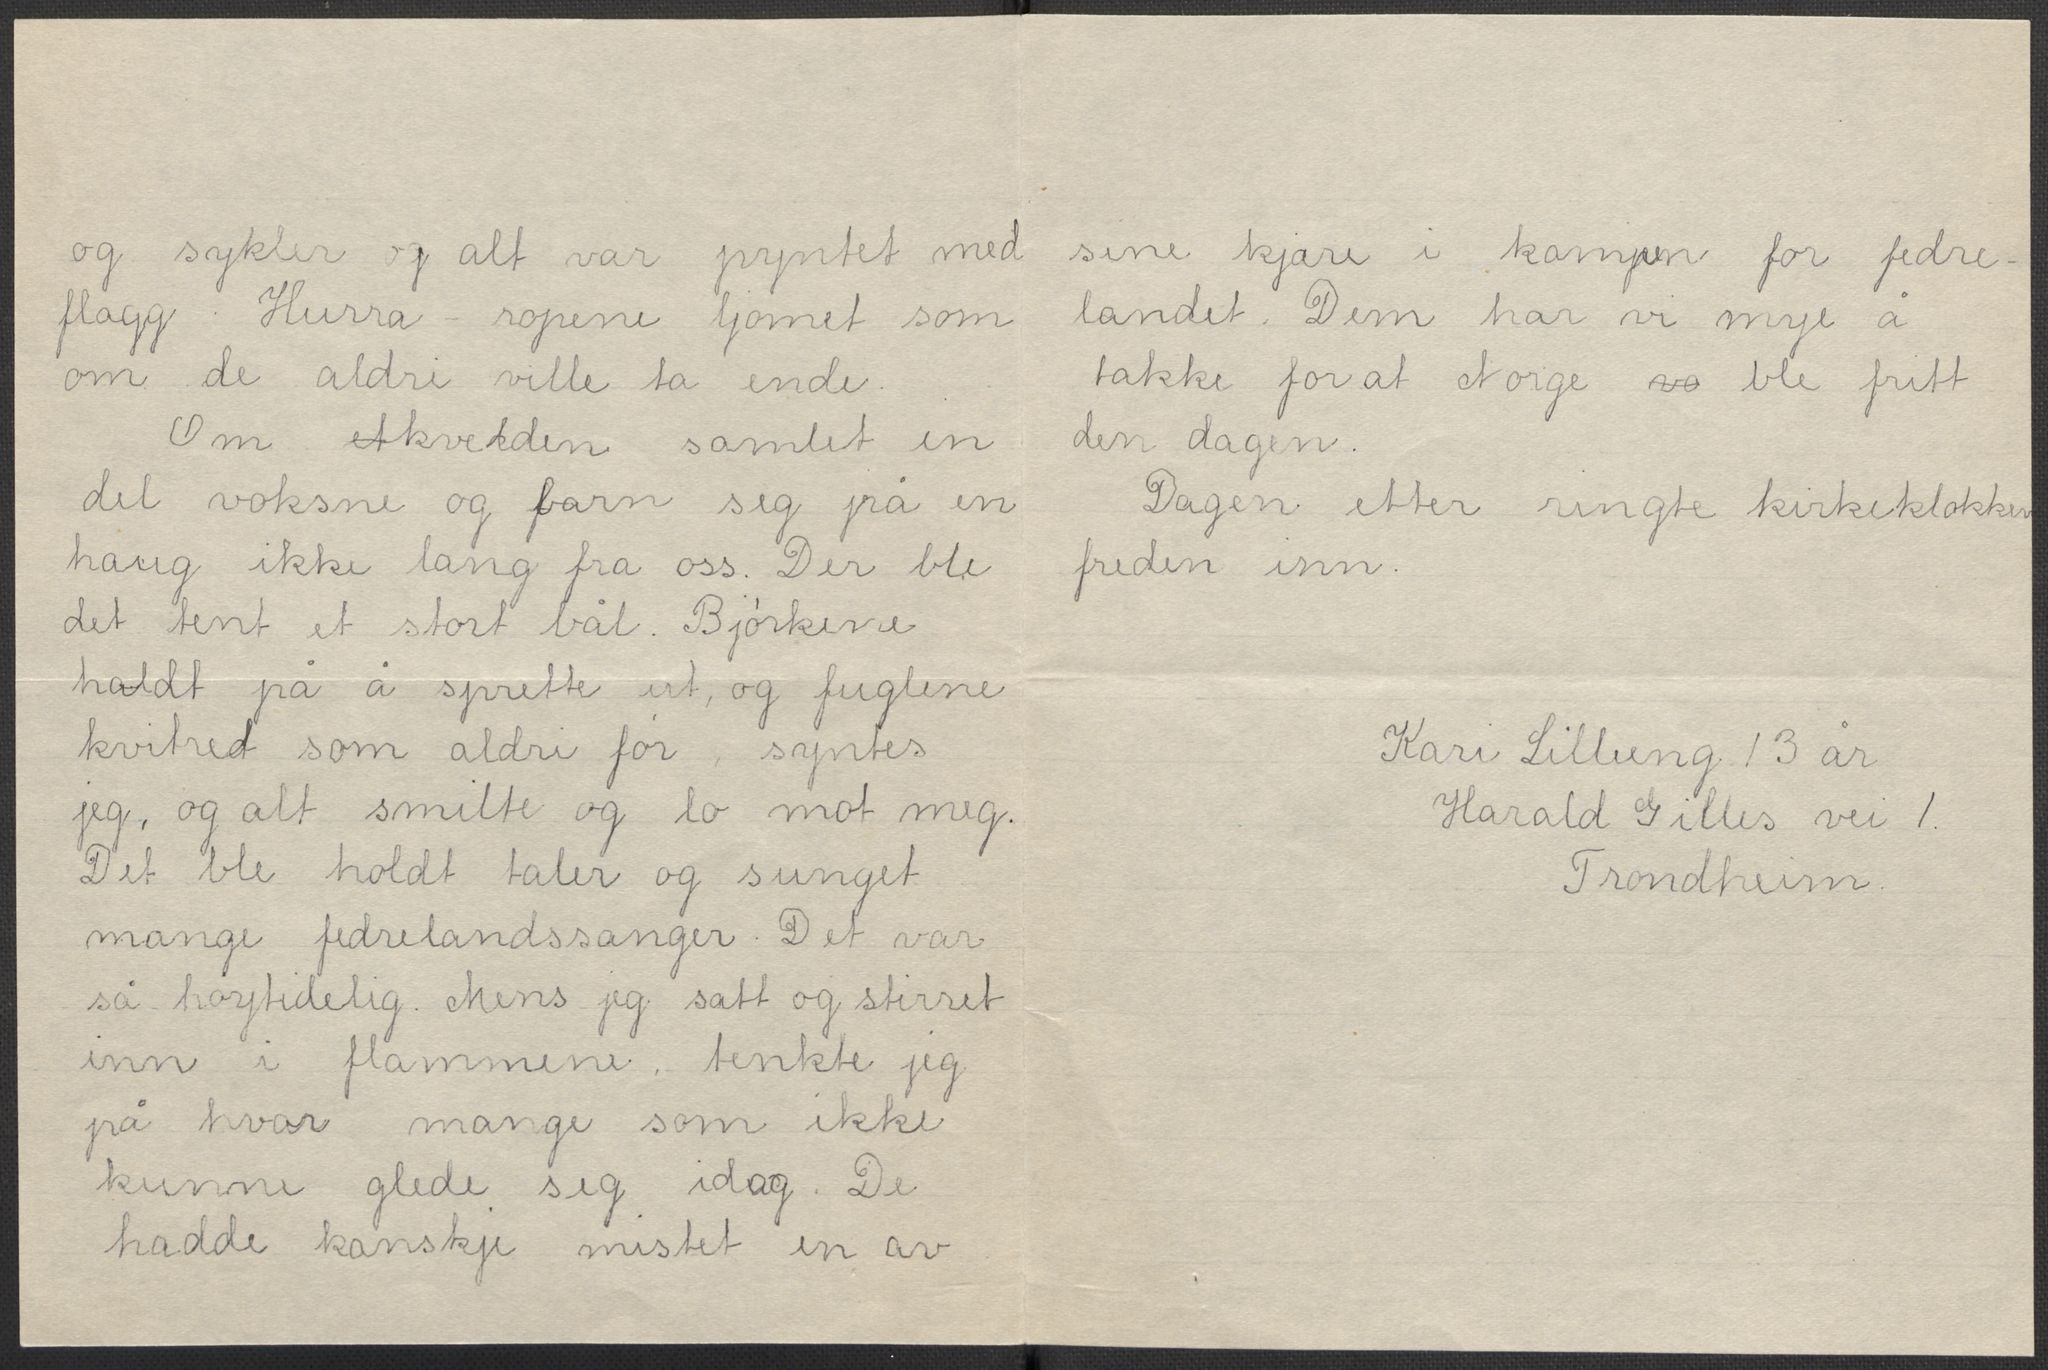 og sykler og alt var pyntet med
flagg. Hurra-ropene ljomet som
om de aldri ville ta ende.
Om kvelden samlet en
del voksne og barn seg på en
haug ikke lang fra oss. Der ble
det tent et stort bål. Bjørkene
holdt på å sprette ut, og fuglene
kvitret som aldri før, syntes
jeg, og alt smilte og lo mot meg.
Det ble holdt taler og sunget
mange fedrelandssanger. Det var
så høytidelig. Mens jeg satt og stirret
inn i flammene, tenkte jeg
på hvor mange som ikke
kunne glede seg idag. De
hadde kanskje mistet en av
sine kjære i kampen for fedre-
landet. Dem har vi mye å
takke for at Norge va ble fritt
den dagen.
Dagen etter ringte kirkeklokken
freden inn.
Kari Lilleeng 13 år
Harald Gilles vei 1.
Trondheim.